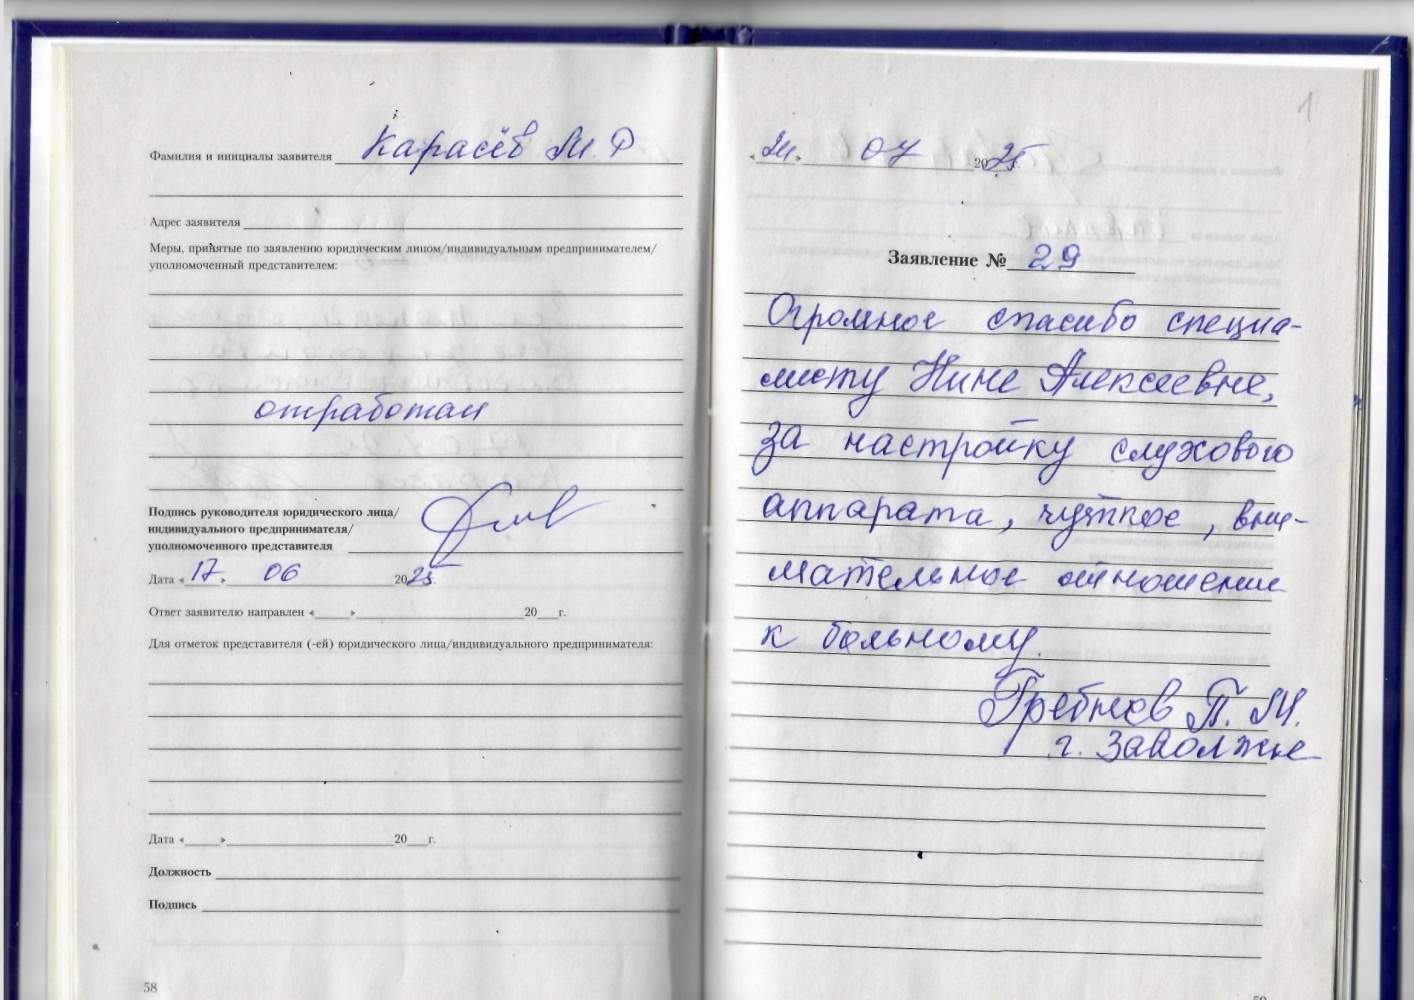 Фамилия и инициалы заявителя Карасёв М. Р
Адрес заявителя
Меры, принятые по заявлению юридическим лицом/индивидуальным предпринимателем/
уполномоченный представителем:
отработан
Подпись руководителя юридического лица/
индивидуального предпринимателя/
уполномоченного представителя
Дата «17» 06 2025г.
Ответ заявителю направлен «      » 20   г.
Для отметок представителя (-ей) юридического лица/индивидуального предпринимателя:
Дата «      » 20   г.
Должность
Подпись
58
1
07 2025г.
Заявление № 29
Огромное спасибо специа-
листу Нине Алексеевне,
за настройку слухового
аппарата, чуткое, вни-
мательное отношение
к больному.
Гребнев П. М.
г. Заволжье
59